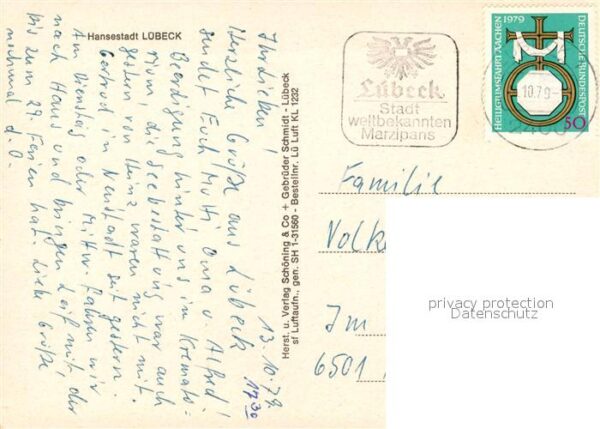 Hansestadt LÜBECK
13.10.79
17.30
Ihr Lieben!
Herzliche Grüße aus Lübeck
sendet Euch Mutti Oma u. Alfred!
Beerdigung hinter uns im Kremato-
rium die Seebestattung war auch
gestern von Heinz waren nicht mit.
Gertrud in Neustadt seit gestern.
Am Dienstag oder Mittw. fahren wir
nach Haus und bringen Leif mit, der
bis zum 29. Ferien hat. Liebe Grüße
nochmal d. O.
Herst. u. Verlag Schöning & Co + Gebrüder Schmidt - Lübeck
sf Luftaufn., gen. SH 1-31560 - Bestellnr. Lü Luft KL 1232
Lübeck
Stadt
weltbekannten
Marzipans
10.79
2400
HEILIGTUMSFAHRT AACHEN 1979
DEUTSCHE BUNDESPOST
50
Familie
Volke
Im
6501
privacy protection
Datenschutz